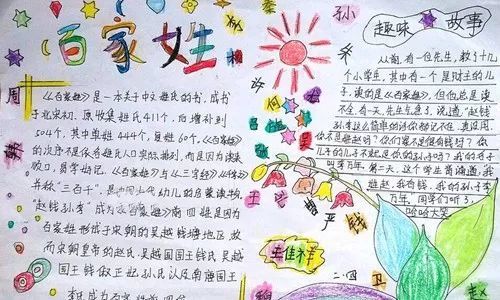 百家姓
《百家姓》是一本关于中文姓氏的书,成书
于北宋初。原收集姓氏411个,后增补到
504个,其中单姓444个,复姓60个。《百家姓》
的次序不是依各姓氏人口实际排列,而是因为读来
顺口,易学好记。《百家姓》与《三字经》《千字文》
并称“三百千”,是中国古代幼儿的启蒙读物。
“赵钱孙李”成为百家姓前四姓是因为
百家姓形成于宋朝的吴越钱塘地区,故
而宋朝皇帝的赵氏、吴越国国王钱氏、吴越
国国王钱俶正妃孙氏以及南唐国王
李氏成为百家姓前四位
趣味故事
从前,有一位先生,教了十几
个小学生,其中有一个是财主的儿
子,读的是《百家姓》,但他总是读
不会。有一天,先生生气了,说道,“赵钱
孙李这么简单的话你都记不住,真没用
你不是姓赵吗?你们家不是很有钱吗?你
儿子的儿子不就是你的孙子吗?我的名子
叫李百年。第二天,这个学生背诵道,我
姓赵,我有钱,我的孙子李
百年。同学们听了,
哈哈大笑
周
孙
朱
许
何
吕
张
吴
王
兰
严
钱
王佳祥
二.四
卫
魏